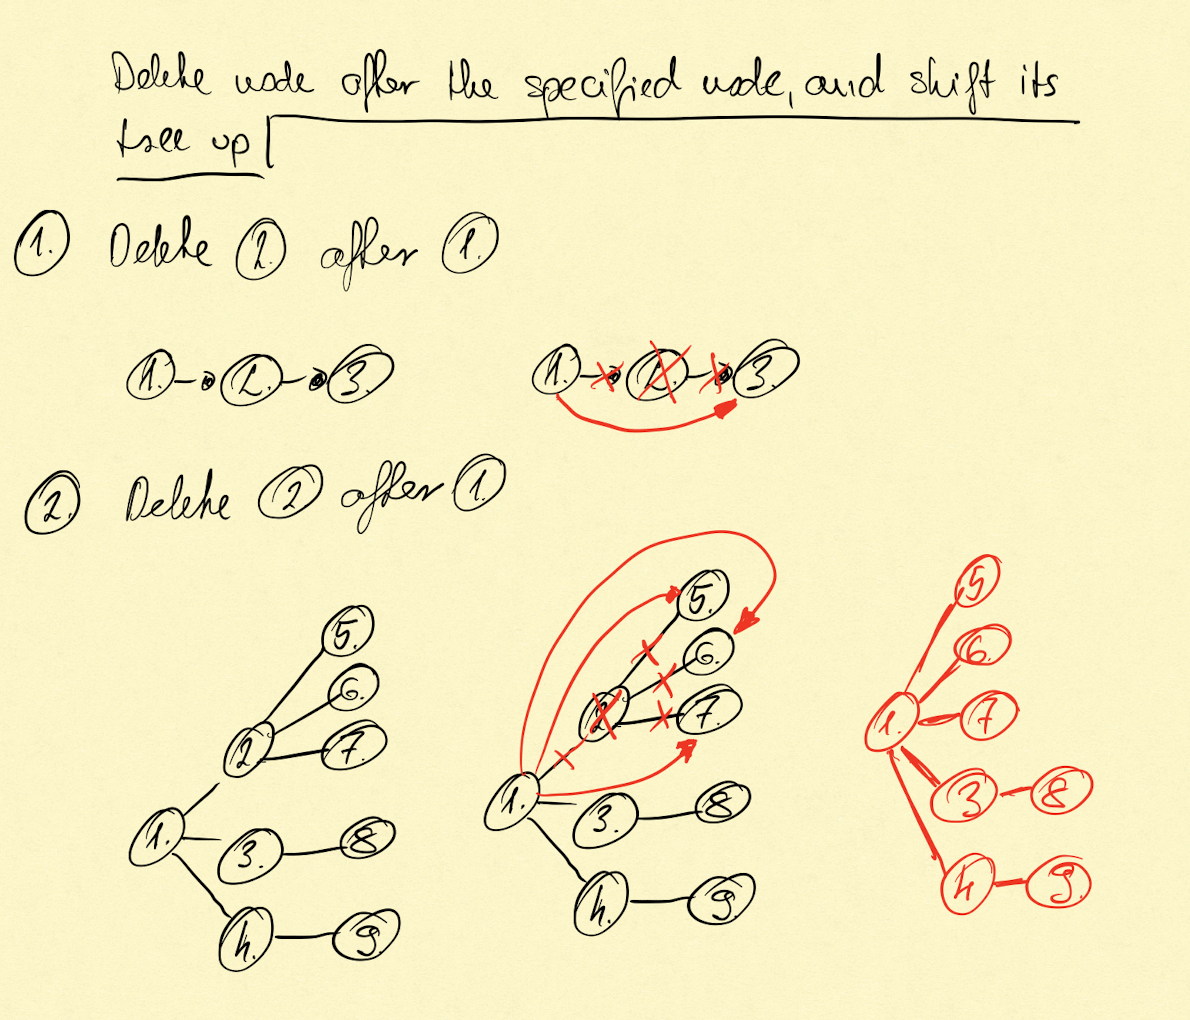 Delete node after the specified node, and shift its
tree up
1. Delete 2. after 1.
1. 2. 3. 1. 2. 3.
2. Delete 2 after 1.
5. 5. 5
6. 6. 6.
2 7. 2 7. 1. 7
1. 3. 8 1. 3. 8 3 8
4. 9. 4. 9. 4 9.